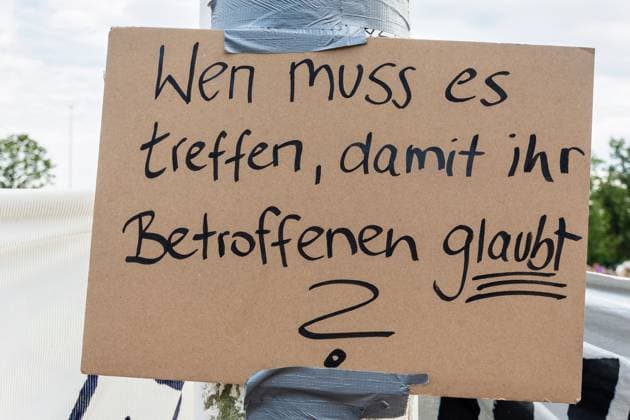 Wen muss es
treffen, damit ihr
Betroffenen glaubt
?